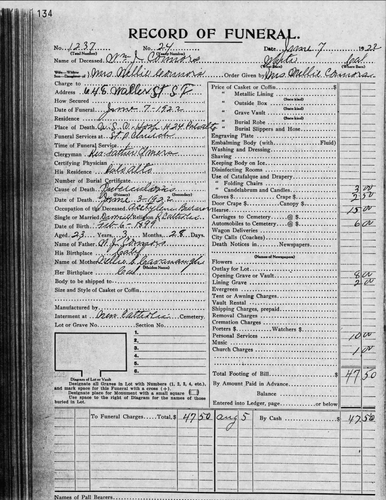 134
RECORD OF FUNERAL.
No. 1237 (Total Number) No. 24 (Yearly Number) Date June 7 1922
Name of Deceased Wm J. Connors White Cal
Mrs Nellie Connors Order Given by Mrs Nellie Connors
Charge to
Address 648 Waller St S.F.
How Secured
Date of Funeral June 7-1922
Residence
Place of Death U.S.V. Hosp #24 Palo Alto
Funeral Services at
Time of Funeral Service
Clergyman Rev Father
Certifying Physician
His Residence Palo Alto
Number of Burial Certificate
Cause of Death Tuberculosis
Date of Death June 3-1922
Occupation of the Deceased
Single or Married Religion Catholic
Date of Birth Feb-6-1899
Aged 23 Years 3 Months 28 Days
Name of Father M. J. Connors
His Birthplace
Name of Mother Nellie Cavanaugh (Maiden Name)
Her Birthplace Cal
Body to be shipped to
Size and Style of Casket or Coffin
Manufactured by
Interment at Cemetery
Lot or Grave No. Section No.
Diagram of Lot or Vault
Designate all Graves in Lot with Numbers (1, 2, 3, 4, etc.),
and mark space for this Funeral with a cross (+)
Designate place for Monument with a small square
Use space to the right of Diagram for the names of those
buried in Lot.
Price of Casket or Coffin
" Metallic Lining
" Outside Box
" Grave Vault
" Burial Robe
" Burial Slippers and Hose
Engraving Plate
Embalming Body (with Fluid)
Washing and Dressing
Shaving
Keeping Body on Ice
Disinfecting Rooms
Use of Catafalque and Drapery
" Folding Chairs
" Candelabrum and Candles 3 00
Gloves $ Crape $ 2 50
Door Crape $ Canopy $
Hearse 15 00
Carriages to Cemetery @ $
Automobiles to Cemetery @ $ 6 00
Wagon Deliveries
City Calls (Coaches)
Death Notices in Newspapers
(Names of Newspapers)
Flowers
Outlay for Lot
Opening Grave or Vault 8 00
Lining Grave 2 00
Evergreen
Tent or Awning Charges
Vault Rental
Shipping Charges, prepaid
Removal Charges
Cremation Charges
Porters $ Watchers $
Personal Services 10 00
Music
Church Charges 1 00
Total Footing of Bill $ 47 50
By Amount Paid in Advance
Balance
Entered into Ledger, page or below.
To Funeral Charges Total, $ 47 50 Aug 5 By Cash $ 47 50
Names of Pall Bearers